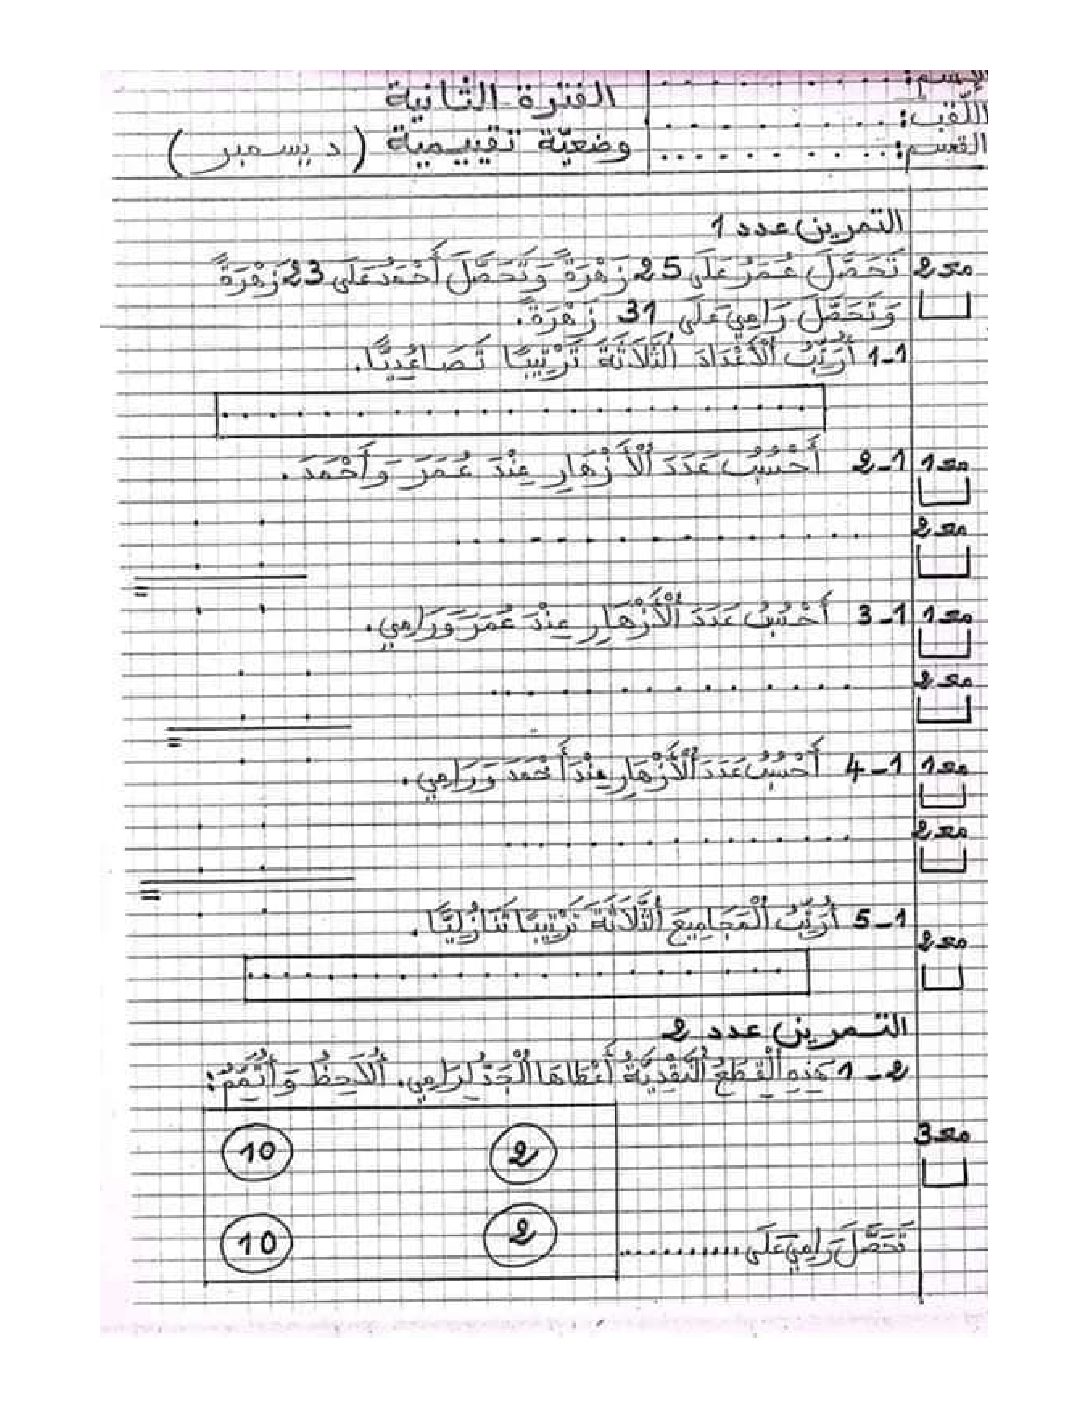 الإسم: . . . . . . . . . .
اللّقب: . . . . . . . . . .
القسم: . . . . . . . . . .
الفترة الثانية
وضعيّة تقييمية (ديسمبر)
التمرين عدد 1
مع2 تَحَصَّلَ عُمَرُ عَلَى 25 زَهْرَةً وَتَحَصَّلَ أَحْمَدُ عَلَى 23 زَهْرَةً
وَتَحَصَّلَ رَامِي عَلَى 31 زَهْرَةً.
1-1 أُرَتِّبُ الْأَعْدَادَ الثَّلَاثَةَ تَرْتِيبًا تَصَاعُدِيًّا.
. . . . . . . . . . . . . . . . . . . .
مع1 1-2 أَحْسُبُ عَدَدَ الْأَزْهَارِ عِنْدَ عُمَرَ وَأَحْمَدَ.
مع2 . . . . . . . . . . . . . . . .
=
مع1 1-3 أَحْسُبُ عَدَدَ الْأَزْهَارِ عِنْدَ عُمَرَ وَرَامِي.
مع2 . . . . . . . . . . . . . . .
=
مع1 1-4 أَحْسُبُ عَدَدَ الْأَزْهَارِ عِنْدَ أَحْمَدَ وَرَامِي.
مع2 . . . . . . . . . . . . . . .
=
1-5 أُرَتِّبُ الْمَجَامِيعَ الثَّلَاثَةَ تَرْتِيبًا تَنَازُلِيًّا.
مع2 . . . . . . . . . . . . . . . . . .
التمرين عدد 2
2-1 هَذِهِ الْقِطَعُ النَّقْدِيَّةُ أَعْطَاهَا الْجَدُّ لِرَامِي. أُلَاحِظُ وَأُتَمِّمُ:
مع3
2 10
2 10
تَحَصَّلَ رَامِي عَلَى ..........